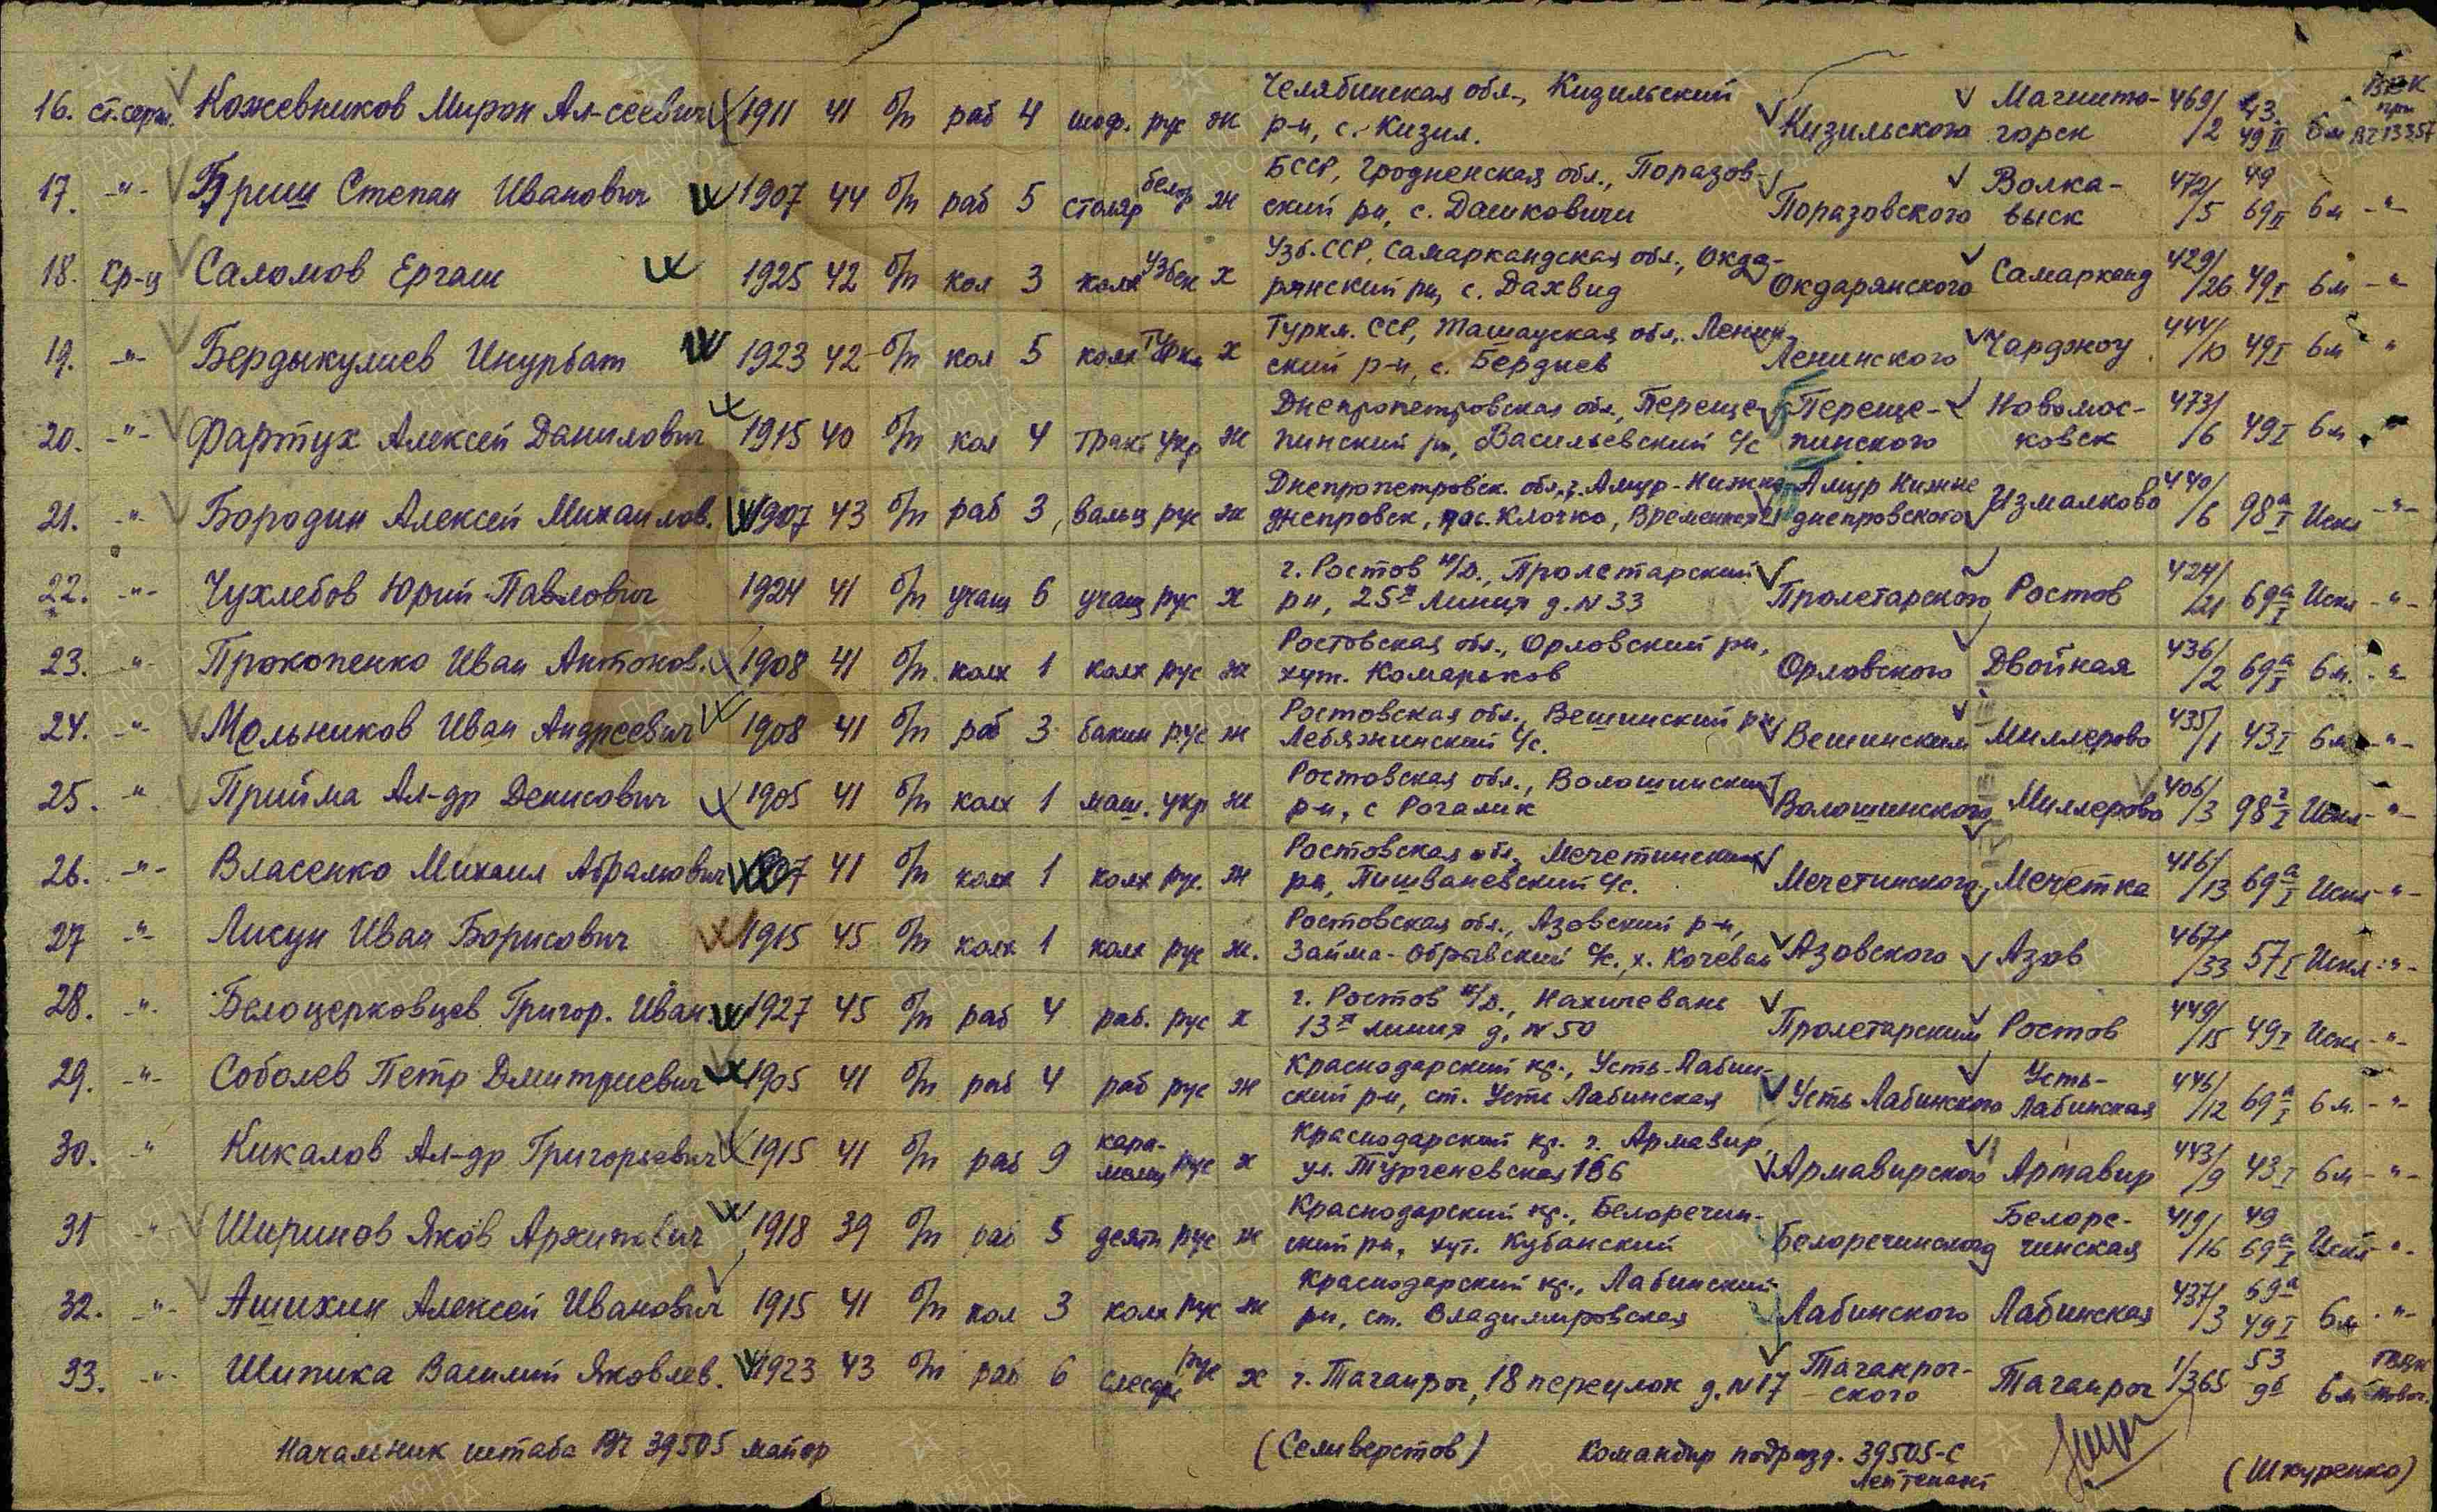 16. ст.серж. Кожевников Мирон Ал-сеевич 1911 41 б/п раб 4 шоф. рус ж Челябинская обл., Кизильский р-н, с. Кизил. Кизильского Магнитогорск 469/2 43 49 II бм ВПК при ВЧ 13357
17. -"- Бриш Степан Иванович 1907 44 б/п раб 5 столяр белор ж БССР, Гродненская обл., Поразовский рн, с. Дашковичи Поразовского Волкавыск 472/5 49 69 II бм -"-
18. Кр-ц Саломов Ергаш 1925 42 б/п кол 3 колх узбек х Узб. ССР, Самаркандская обл., Окдарянский рн, с. Дахвид Окдарянского Самарканд 429/26 49 I бм -"-
19. -"- Бердыкулиев Инурбат 1923 42 б/п кол 5 колх туркм х Туркм. ССР, Ташауская обл., Ленинский р-н, с. Бердиев Ленинского Чарджоу 444/10 49 I бм "
20. -"- Фартух Алексей Данилович 1915 40 б/п кол 4 тракт укр ж Днепропетровская обл, Перещепинский рн, Васильевский с/с Перещепинского Новомосковск 473/6 49 I бм -"-
21. -"- Бородин Алексей Михаилов. 1907 43 б/п раб 3 вальц рус ж Днепропетровск. обл., г. Амур-Нижнеднепровск, пос. Клочко, Временная 21 Амур Нижнеднепровского Измалково 440/6 98 а I Искл -"-
22. -"- Чухлебов Юрий Павлович 1924 41 б/п учащ 6 учащ рус х г. Ростов н/Д., Пролетарский рн, 25я линия д. N 33 Пролетарского Ростов 424/21 69 а I Искл -"-
23. -"- Прокопенко Иван Антонов. 1908 41 б/п колх 1 колх рус ж Ростовская обл., Орловский рн, хут. Комарьков Орловского Двойная 436/2 69 а I бм. -"-
24. -"- Мельников Иван Андреевич 1908 41 б/п раб 3 бакин рус ж Ростовская обл., Вешинский рн Лебяжинский с/с. Вешинским Миллерово 435/1 43 I бм -"-
25. -"- Прийма Ал-др Денисович 1905 41 б/п колх 1 маш. укр ж Ростовская обл., Волошинский р-н, с Рогалик Волошинского Миллерово 406/3 98 г I Искл -"-
26. -"- Власенко Михаил Абрамович 1907 41 б/п колх 1 колх рус. ж Ростовская обл, Мечетинский рн, Пишваневский с/с. Мечетинского Мечетка 416/13 69 а I Искл -"-
27 -"- Лисун Иван Борисович 1915 45 б/п колх 1 колх рус ж. Ростовская обл., Азовский р-н, Займа-Обрывский с/с. х. Кочеван Азовского Азов 467/33 57 I Искл -"-
28. -"- Белоцерковцев Григор. Иван. 1927 45 б/п раб 4 раб. рус х г. Ростов н/Д., Нахичевань 13я линия д. N 50 Пролетарский Ростов 449/15 49 I Искл -"-
29. -"- Соболев Петр Дмитриевич 1905 41 б/п раб 4 раб рус ж Краснодарский кр., Усть-Лабинский р-н, ст. Усть Лабинская Усть Лабинского Усть-Лабинская 446/12 69 а I бм. -"-
30. " Кикалов Ал-др Григорьевич 1915 41 б/п раб 9 рус х Краснодарский кр. г. Армавир, ул. Тургеневская 186 Армавирского Армавир 443/9 43 I бм -"-
31 -"- Ширинов Яков Архипович 1918 39 б/п раб 5 десятн рус ж Краснодарский кр., Белоречинский рн, хут. Кубанский Белоречинского Белореченская 419/16 49 69 а I Искл -"-
32. -"- Ашихин Алексей Иванович 1915 41 б/п кол 3 колх рус ж Краснодарский кр., Лабинский рн, ст. Владимировская Лабинского Лабинская 437/3 69 а 49 I бм -"-
33. -"- Шипика Василий Яковлев. 1923 43 б/п раб 6 слесарь рус х г. Таганрог, 18 переулок д. N 17 Таганрогского Таганрог 1/365 53 9б бм
Начальник штаба ВЧ 39505 майор (Селиверстов) Командир подразд. 39505-С
лейтенант (Шкуренко)